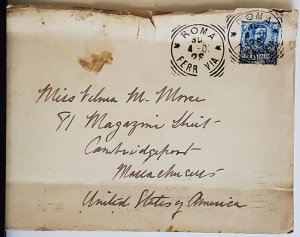 ROMA
FERROVIA
ROMA
Miss Velma M. Morse
81 Magazine Street
Cambridgeport
Massachusetts
United States of America